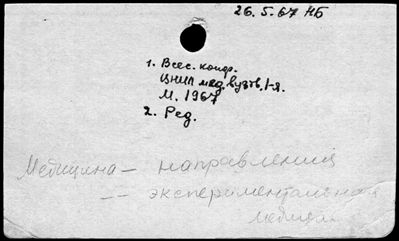 26.5.67 НБ
1. Всес. конф.
ЦНИЛ мед. вузов, 1-я.
М. 1967
2. Ред.
Медицина — направления
— — экспериментальная
медицин